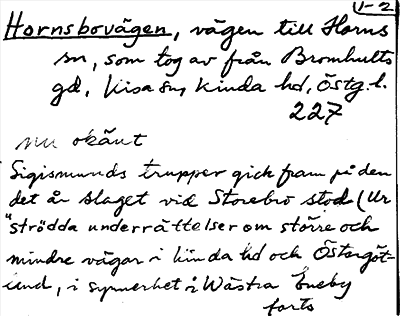 1-2
Hornsbovägen, vägen till Horns
sn, som tog av från Bromhults
gd, Kisa sn, Kinda hd, Östg. l.
227
nu okänt
Sigismunds trupper gick fram på den
det år slaget vid Storebro stod (Ur
"strödda underrättelser om större och
mindre vägar i Kinda hd och Östergöt-
land, i synnerhet i Wästra Eneby
forts